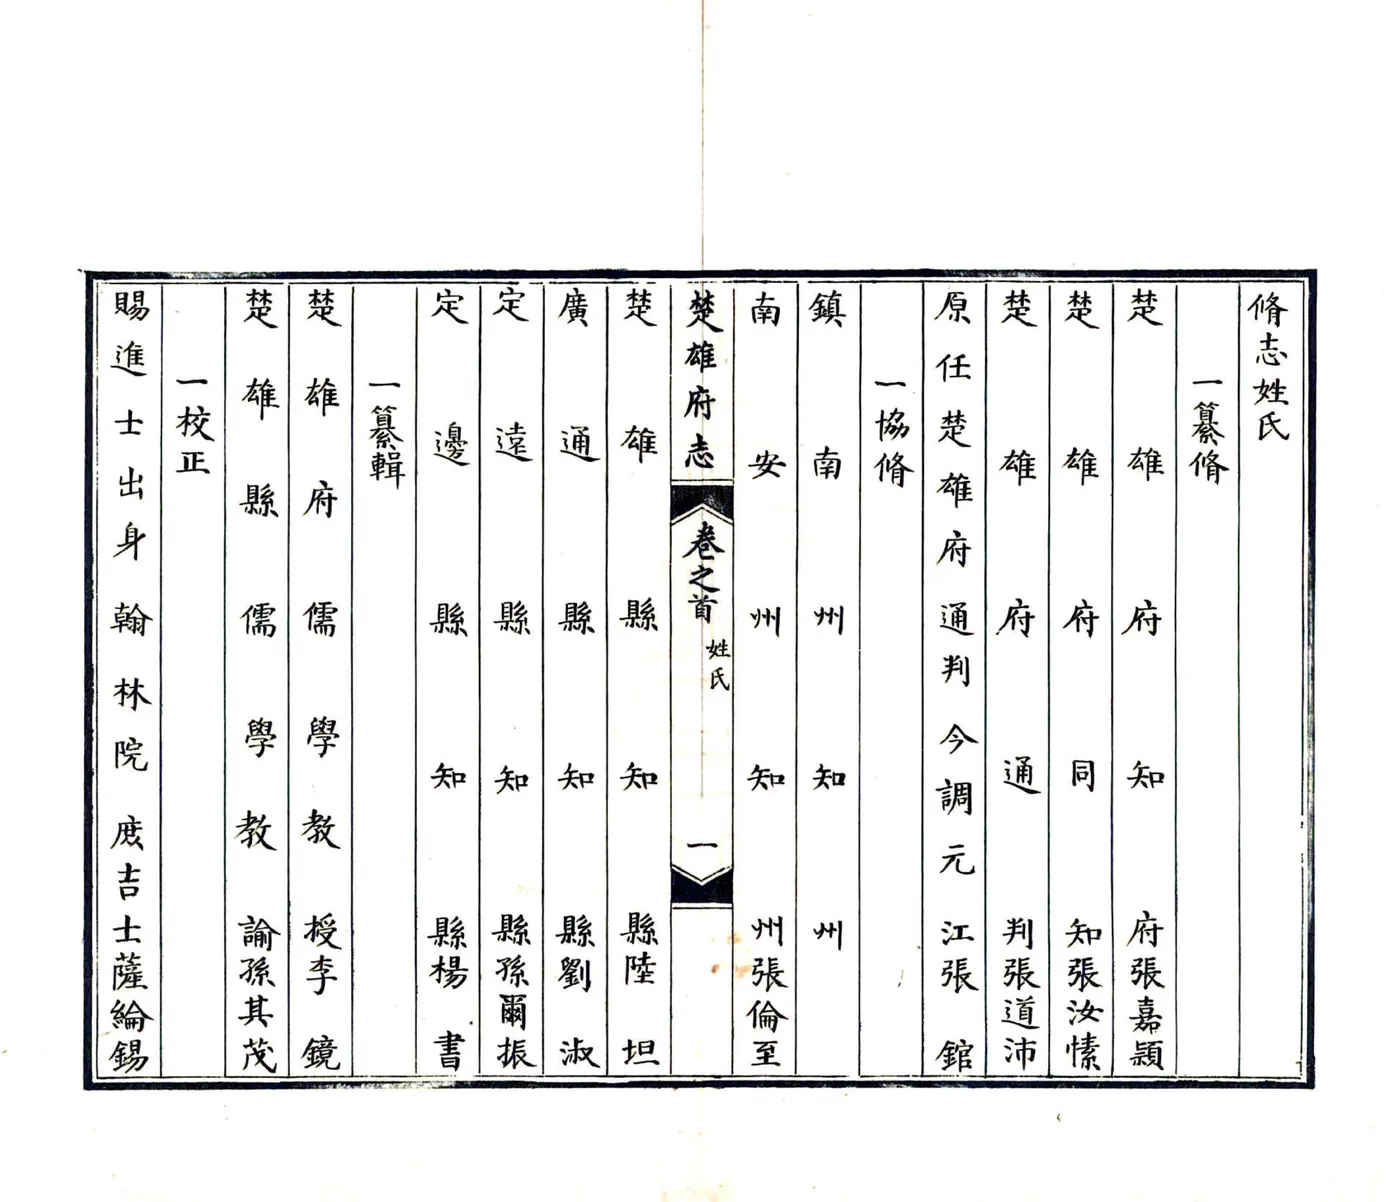 脩志姓氏
一纂脩
楚雄府知府張嘉穎
楚雄府同知張汝愫
楚雄府通判張道沛
原任楚雄府通判今調元江張錧
一協脩
鎮南州知州
南安州知州張倫至
楚雄府志 卷之首 姓氏 一
楚雄縣知縣陸坦
廣通縣知縣劉淑
定遠縣知縣孫爾振
定邊縣知縣楊書
一纂輯
楚雄府儒學教授李鏡
楚雄縣儒學教諭孫其茂
一校正
賜進士出身翰林院庶吉士薩綸錫